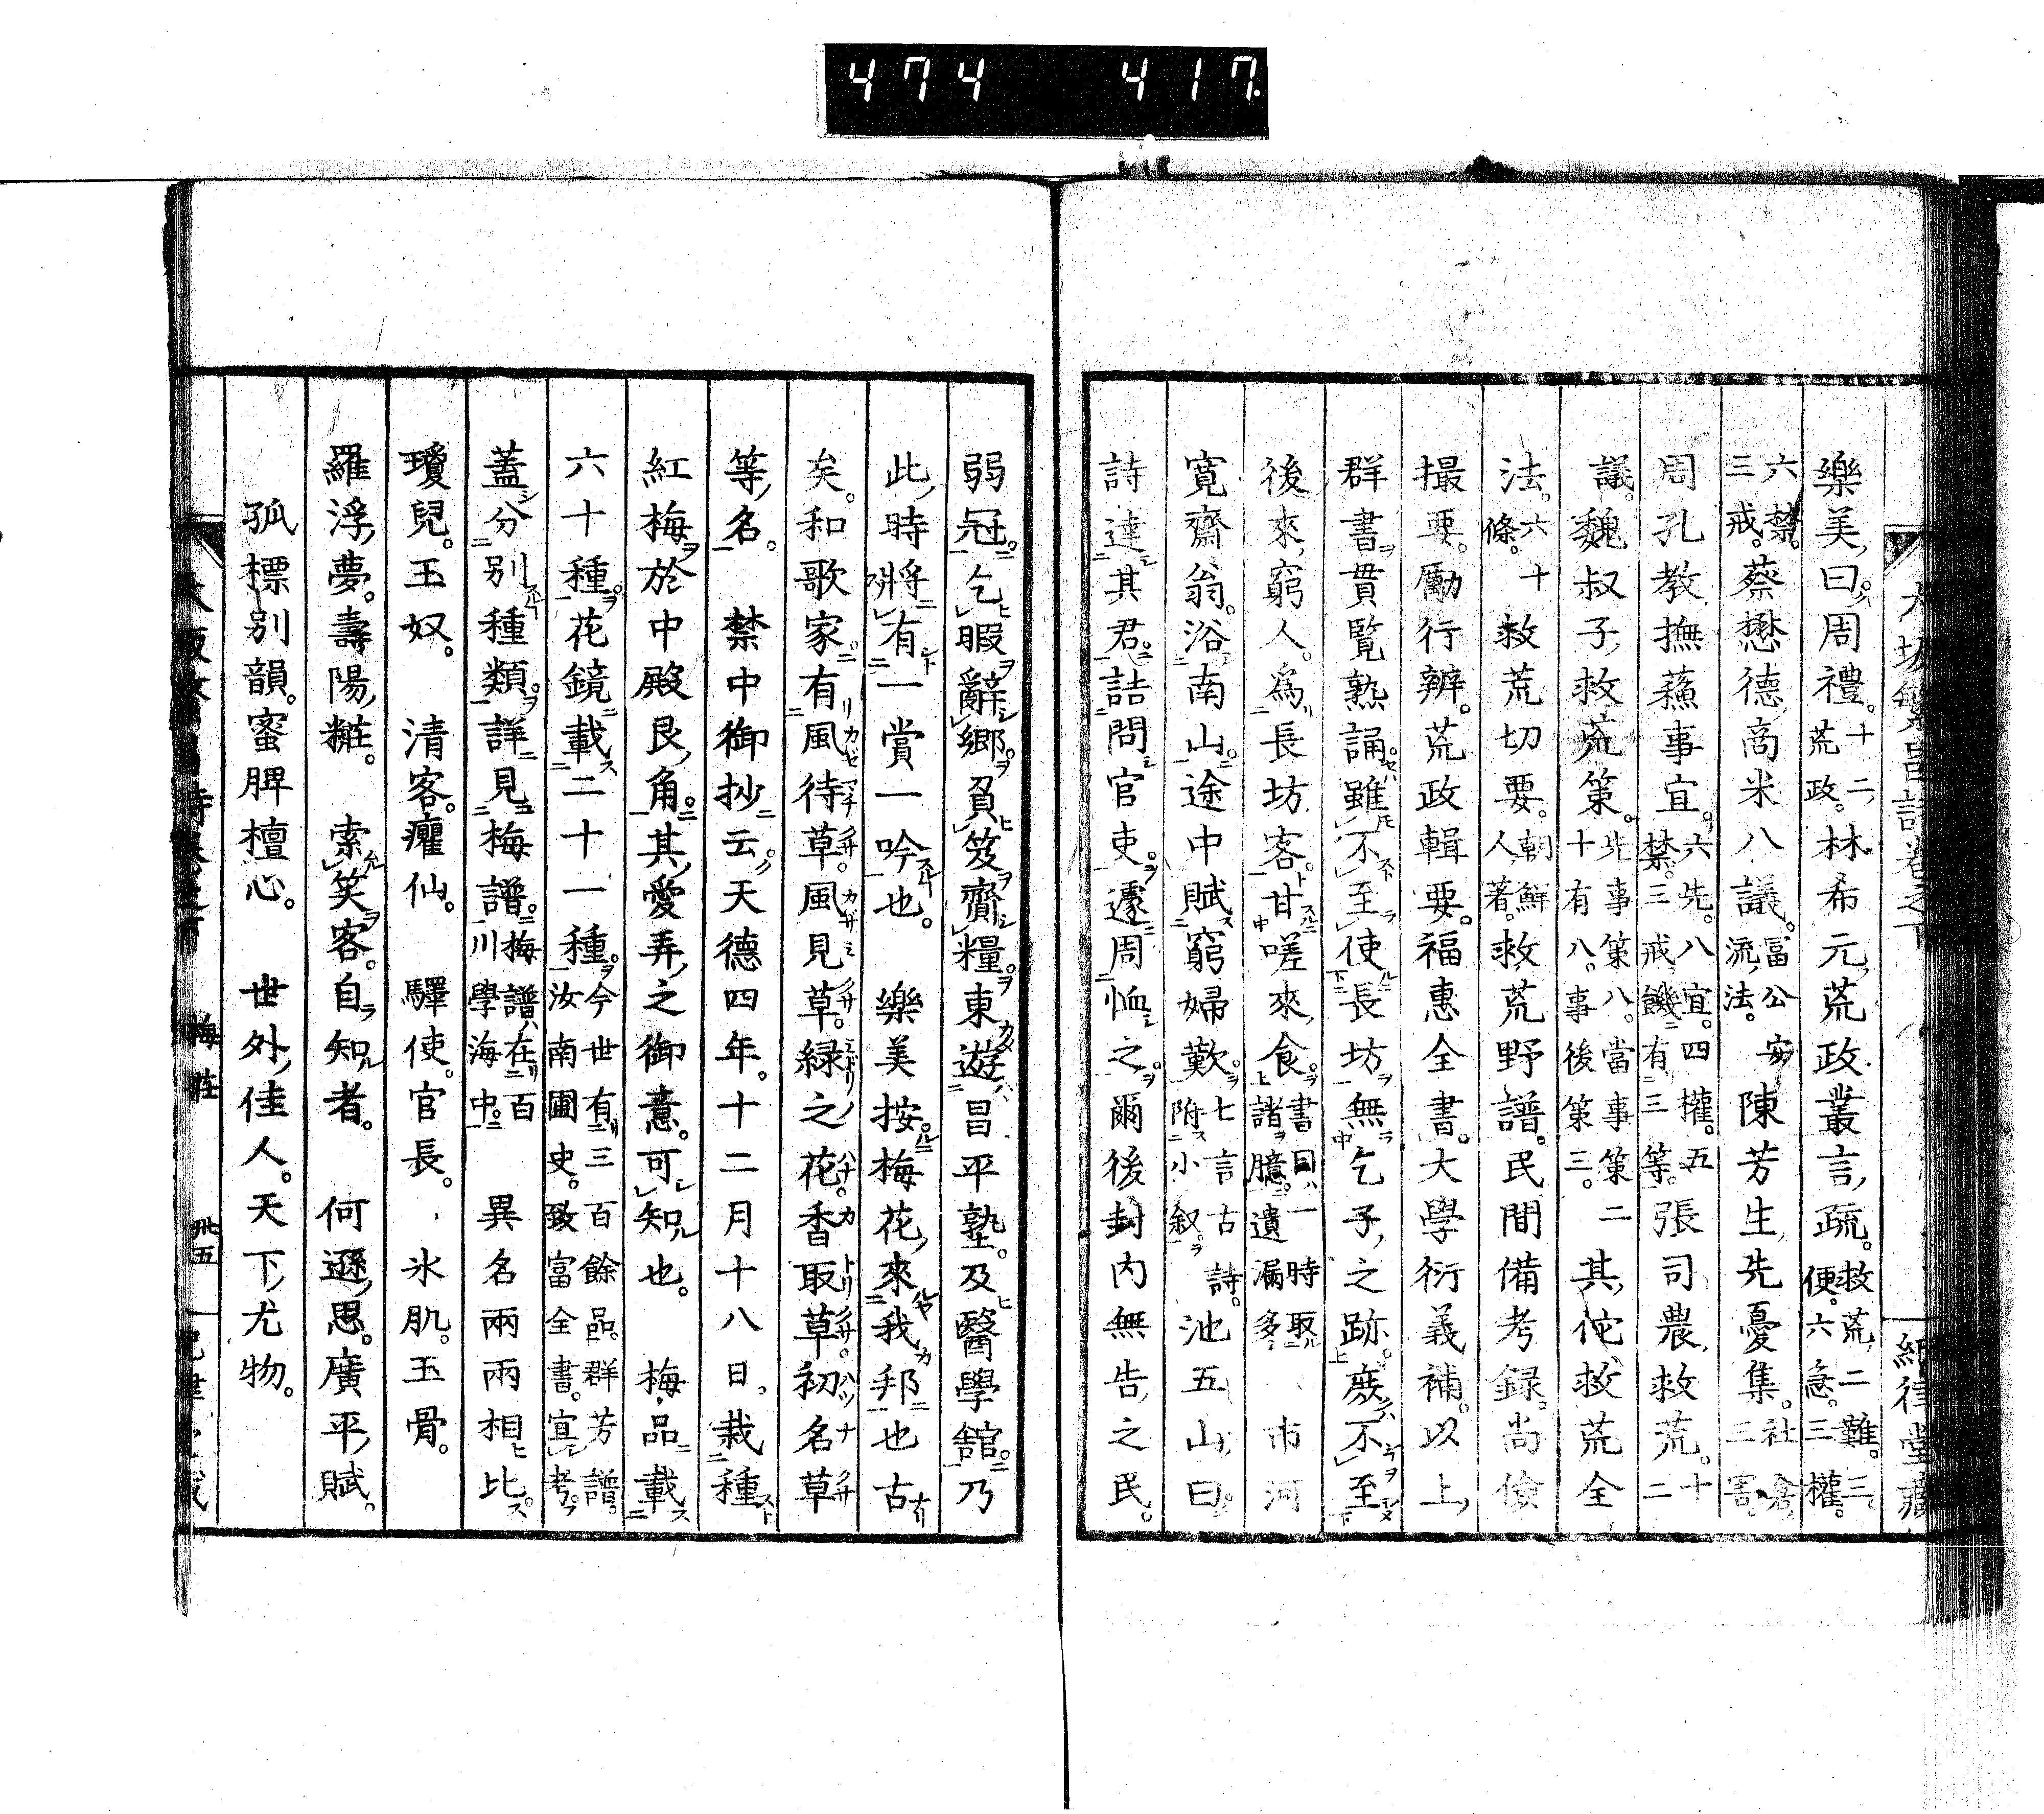 474 417
樂美曰。周禮。荒十政。二林希元荒政叢言疏。救荒二難。三便。六急。三權。
六禁。三戒。蔡懋德商米八議。富公安流法。陳芳生先憂集。社倉三害。
周孔教撫蘓事宜。六先。八宜。四權。五禁。三戒。饑有三等。張司農救荒。十二
議。魏叔子救荒策。先事策八。當事策二十有八。事後策三。其佗救荒全
法。六十條。救荒切要。朝鮮人著。救荒野譜。民間備考録。尚儉
撮要。勵行辨。荒政輯要。福惠全書。大學衍義補。以上
群書貫覧熟誦。雖不至使長坊無乞子之跡。庻不至
後來窮人。爲長坊客。甘嗟來食。書目一時取諸臆。遺漏多 市河
寛齋翁。浴南山。途中賦窮婦歎。七言古詩。附小叙。池五山曰
詩達其君。詰問官吏。遽周恤之。爾後封内無告之民。
弱冠。乞暇辭郷。負笈齎糧。東遊昌平塾。及醫學舘。乃
此時將有一賞一吟也。 樂美按。梅花來我邦也古
矣。和歌家。有風待草。風見草。緑之花。香取草。初名草
等名。 禁中御抄云。天德四年。十二月十八日。栽種
紅梅於中殿艮角。其愛弄之御意。可知也。 梅品載
六十種。花鏡載二十一種。今世有三百餘品。群芳譜。汝南圃史。致富全書。宜考。
蓋分別種類。詳見梅譜。梅譜在百川學海中。 異名兩兩相比。
瓊兒。玉奴。 清客。癯仙。 驛使。官長。 氷肌。玉骨。
羅浮夢。壽陽粧。 索笑客。自知者。 何遜思。廣平賦。
孤標別韻。蜜脾檀心。 世外佳人。天下尤物。
梅莊 卅五